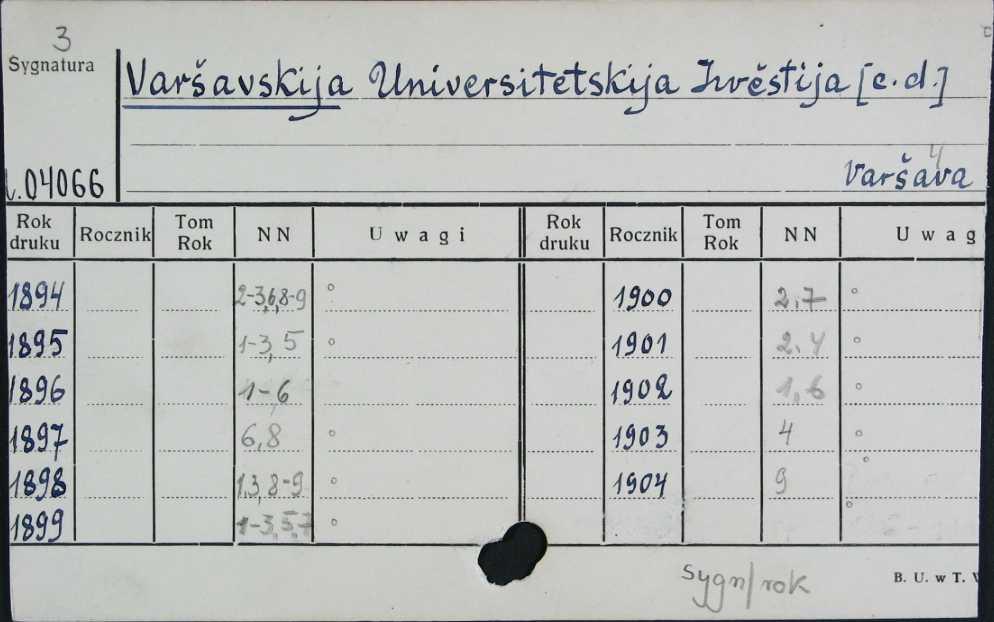 3
Sygnatura
Varšavskija Universitetskija Izvěstija [c.d.]
4
04066
Varšava
Rok druku Rocznik Tom Rok NN Uwagi Rok druku Rocznik Tom Rok NN Uwag
1894 2-3,6,8-9 1900 2,7
1895 1-3,5 1901 2,4
1896 1-6 1902 1,6
1897 6,8 1903 4
1898 1,3,8-9 1904 9
1899 1-3,5,7
sygn/rok
B. U. w T.